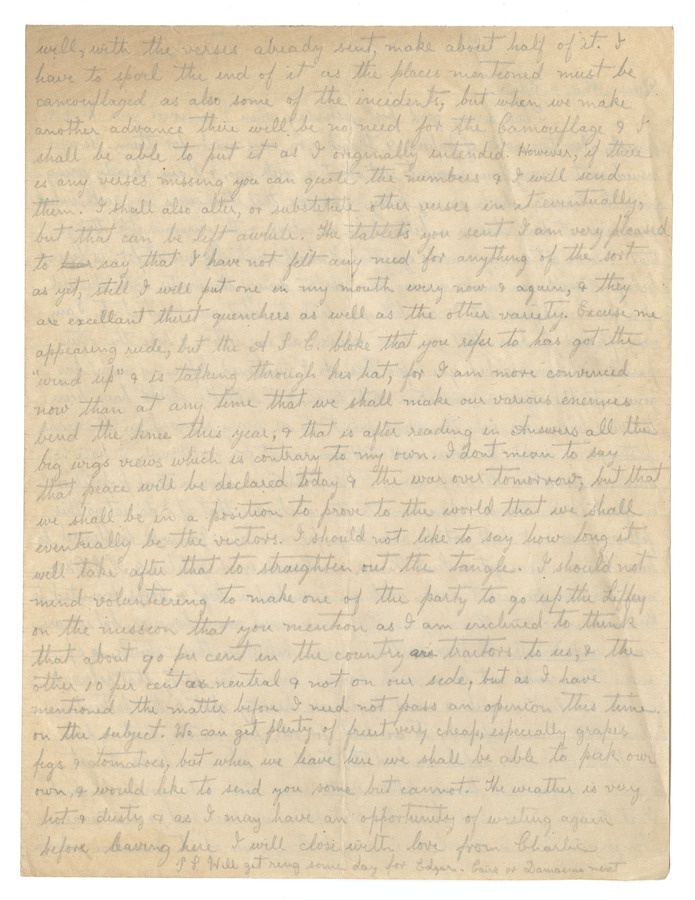 will, with the verses already sent, make about half of it. I
have to spoil the end of it as the places mentioned must be
camouflaged as also some of the incidents, but when we make
another advance there will be no need for the Camouflage & I
shall be able to put it as I originally intended. However, if there
is any verses missing you can quote the numbers & I will send
them. I shall also alter, or substitute other verses in it eventually,
but that can be left awhile. The tablets you sent I am very pleased
to say that I have not felt any need for anything of the sort
as yet, still I will put one in my mouth every now & again, & they
are excellant thirst quenchers as well as the other variety. Excuse me
appearing rude, but the A S C. bloke that you refer to has got the
"wind up" & is talking through his hat, for I am more convinced
now than at any time that we shall make our various enemies
bend the knee this year, & that is after reading in Answers all the
big wigs views which is contrary to my own. I dont mean to say
that peace will be declared today & the war over tomorrow, but that
we shall be in a position to prove to the world that we shall
eventually be the victors. I should not like to say how long it
will take after that to straighten out the tangle. I should not
mind volunteering to make one of the party to go up the Liffey
on the mission that you mention as I am inclined to think
that about 90 per cent in the country are traitors to us, & the
other 10 per cent are neutral & not on our side, but as I have
mentioned the matter before I need not pass an opinion this time
on the subject. We can get plenty of fruit very cheap, especially grapes
figs & tomatoes, but when we leave here we shall be able to pick our
own, & would like to send you some but cannot. The weather is very
hot & dusty & as I may have an opportunity of writing again
before leaving here I will close with love from Charlie
P S. Will get ring some day for Edgar. Cairo or Damascus next